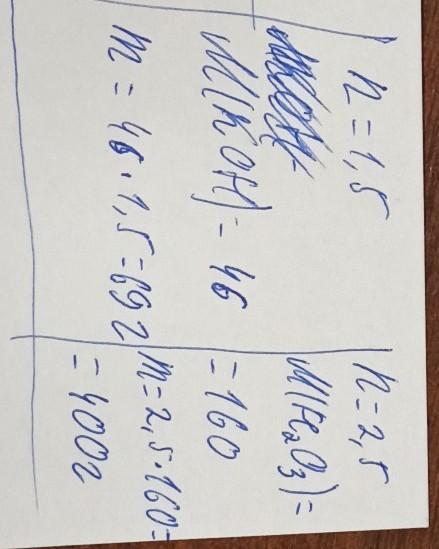 n = 1,5
M(KOH) = 46
m = 46 · 1,5 = 69 г
n = 2,5
M(Fe₂O₃) =
= 160
m = 2,5 · 160 =
= 400 г